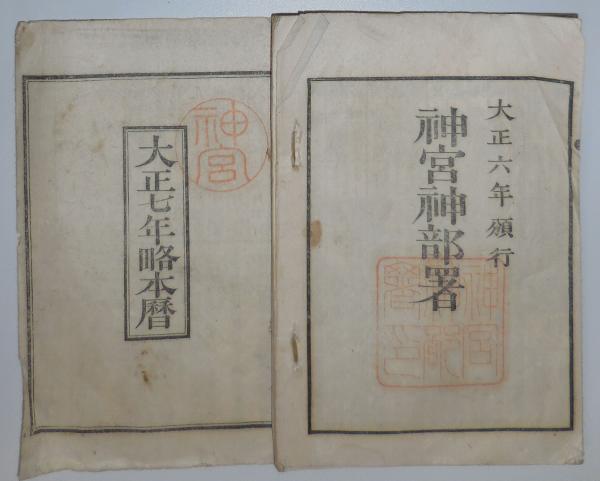 大正六年頒行
神宮神部署
神宮神部署之印
神宮
大正七年略本暦